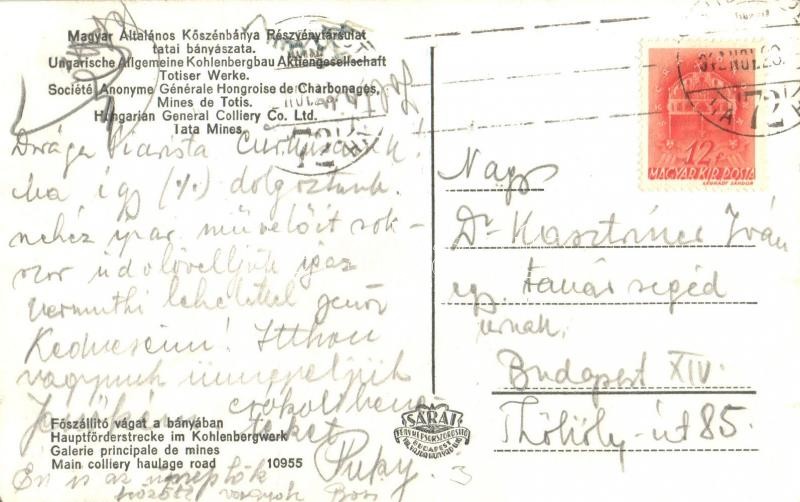 Magyar Általános Kőszénbánya Részvénytársulat
tatai bányászata.
Ungarische Allgemeine Kohlenbergbau Aktiengesellschaft
Totiser Werke.
Société Anonyme Générale Hongroise de Charbonages,
Mines de Totis.
Hungarian General Colliery Co. Ltd.
Tata Mines.
Drága Piarista
Ma így (%) dolgoztunk.
nehéz ipar művelőit sok-
szor üdvözöljük igaz
vermuthi lehelettel
Kedveseim! Itthon
vagyunk ünnepeljük
csókol benne-
teket
Puky
Én is az ünneplők
között vagyok
Főszállító vágat a bányában
Hauptförderstrecke im Kohlenbergwerk
Galerie principale de mines
Main colliery haulage road 10955
BARAT
FÉNYKÉPSOKSZOROSÍTÓ
BUDAPEST
12 f.
MAGYAR KIR. POSTA
942 NOV. 26.
72
Nagys
Dr Kasztriner Iván
egy. tanársegéd
úrnak,
Budapest XIV.
Thököly-út 85.